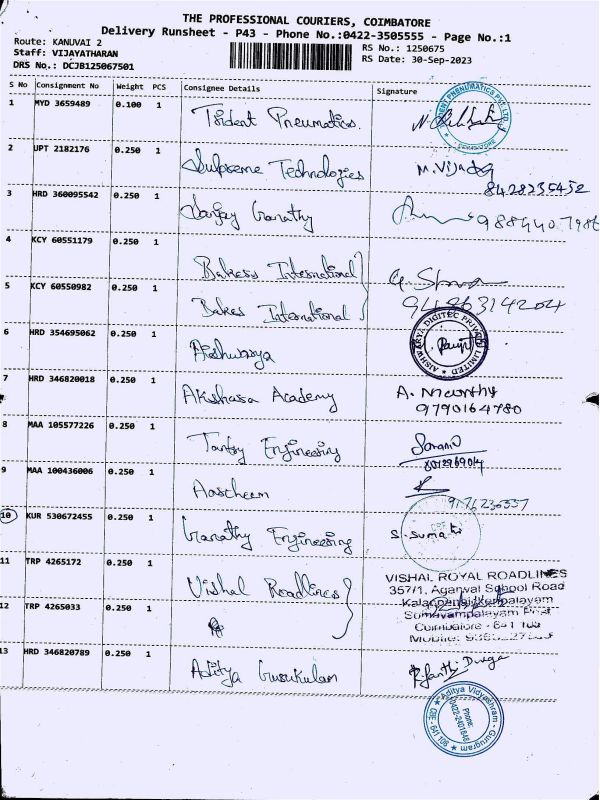 THE PROFESSIONAL COURIERS, COIMBATORE
Delivery Runsheet - P43 - Phone No.:0422-3505555 - Page No.:1
Route: KANUVAI 2
Staff: VIJAYATHARAN
DRS No.: DCJB125067501
RS No.: 1250675
RS Date: 30-Sep-2023
S No Consignment No Weight PCS Consignee Details Signature
1 MYD 3659489 0.100 1 Trident Pneumatics.
2 UPT 2182176 0.250 1 Supreme Technologies M. Vijay
8428235452
3 HRD 360095542 0.250 1 Sanjay Ganathy
4 KCY 60551179 0.250 1 Bakers International
5 KCY 60550982 0.250 1 Bakes International
6 HRD 354695062 0.250 1 Aishwarya
AISHWARYA DIGITEC PRIVATE LIMITED
7 HRD 346820018 0.250 1 Akshara Academy A. Moorthy
9790164780
8 MAA 105577226 0.250 1 Engineering
9 MAA 100436006 0.250 1
9176236337
10 KUR 530672455 0.250 1 Ganathy Engineering S. Sumathi
11 TRP 4265172 0.250 1 Vishal Roadlines
VISHAL ROYAL ROADLINES
357/1, Agarwal School Road
12 TRP 4265033 0.250 1
Coimbatore - 641 108
13 HRD 346820789 0.250 1 Aditya Gurukulam
Aditya Vidyashram - Gurugram
Phone:
0422-2401848
CBE - 641 108